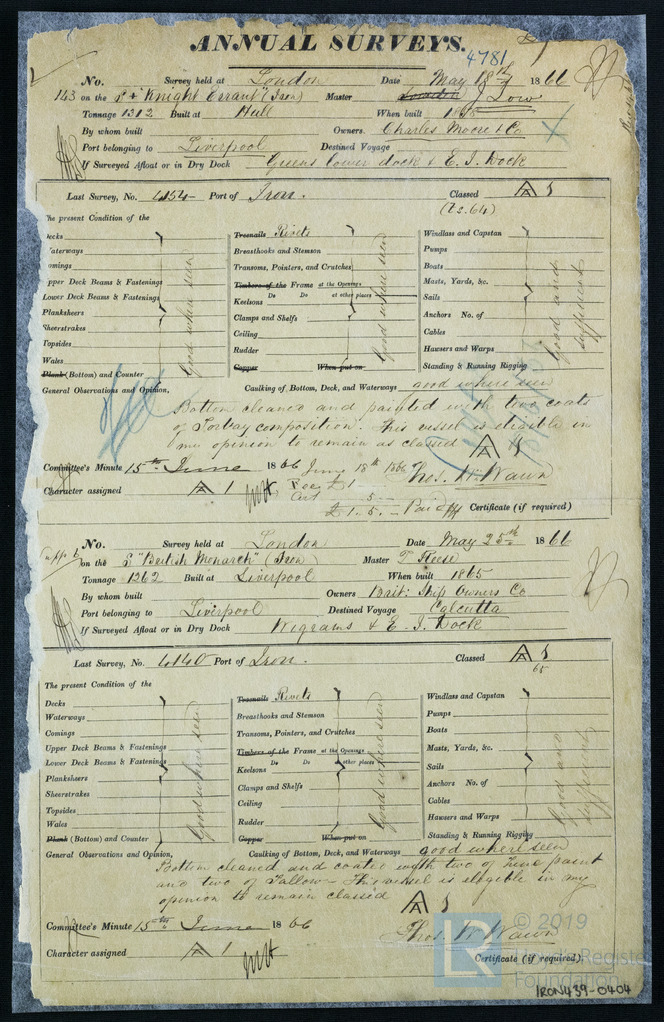 ANNUAL SURVEYS.
4781
No. Survey held at London Date May 18th 1866
143 on the S "Knight Errant" (Iron) Master London J Low
Tonnage 1312 Built at Hull When built
By whom built Owners Charles Moore & Co
Port belonging to Liverpool Destined Voyage
If Surveyed Afloat or in Dry Dock Greens lower dock & E. I. Dock
Last Survey, No. Port of Iron. Classed A 1
(12.64)
The present Condition of the
Decks Treenails Rivets Windlass and Capstan
Waterways Breasthooks and Stemson Pumps
Comings Transoms, Pointers, and Crutches Boats
Upper Deck Beams & Fastenings Timbers of the Frame at the Openings Masts, Yards, &c.
Lower Deck Beams & Fastenings Do Do at other places Sails
Planksheers Keelsons Anchors No. of
Sheerstrakes Clamps and Shelfs Cables
Topsides Ceiling Hawsers and Warps
Wales Rudder Standing & Running Rigging
Plank (Bottom) and Counter Copper When put on
Good where seen good where seen good and sufficient
General Observations and Opinion, Caulking of Bottom, Deck, and Waterways good where seen
Bottom cleaned and painted with two coats
of Torbay composition. This vessel is eligible in
my opinion to remain as classed A 1
Committee's Minute 15th June 1866 June 18th 1866 Thos. W. Wawn
Character assigned A 1 Fee £1
Cert 5
£1. 5. - Paid Certificate (if required)
No. Survey held at London Date May 25th 1866
on the S "British Monarch" (Iron) Master T
Tonnage 1262 Built at Liverpool When built 1865
By whom built Owners Brit: Ship Owners Co
Port belonging to Liverpool Destined Voyage Calcutta
If Surveyed Afloat or in Dry Dock Wigrams & E. I. Dock
Last Survey, No. 4140 Port of Iron. Classed A 1
65
The present Condition of the
Decks Treenails Rivets Windlass and Capstan
Waterways Breasthooks and Stemson Pumps
Comings Transoms, Pointers, and Crutches Boats
Upper Deck Beams & Fastenings Timbers of the Frame at the Openings Masts, Yards, &c.
Lower Deck Beams & Fastenings Do Do at other places Sails
Planksheers Keelsons Anchors No. of
Sheerstrakes Clamps and Shelfs Cables
Topsides Ceiling Hawsers and Warps
Wales Rudder Standing & Running Rigging
Plank (Bottom) and Counter Copper When put on
Good where seen Good where seen Good and sufficient
General Observations and Opinion, Caulking of Bottom, Deck, and Waterways good where seen
Bottom cleaned and coated with two of paint
and two of Tallow - This vessel is elegible in my
opinion to remain classed A 1
Committee's Minute 15th June 1866 Thos. W. Wawn
Character assigned A 1 Certificate (if required).
© 2019
LR Lloyd's Register
Foundation
IRON439-0404